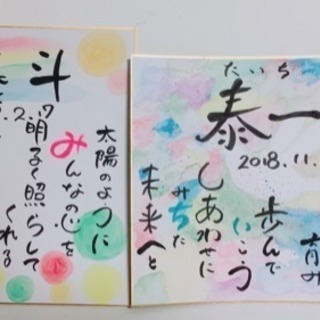 斗
2.7
太陽のように
みんなの心を
明るく照らして
くれる
たいち
泰一
2018.11.
育み
歩んで
いこう
しあわせに
みちた
未来へと